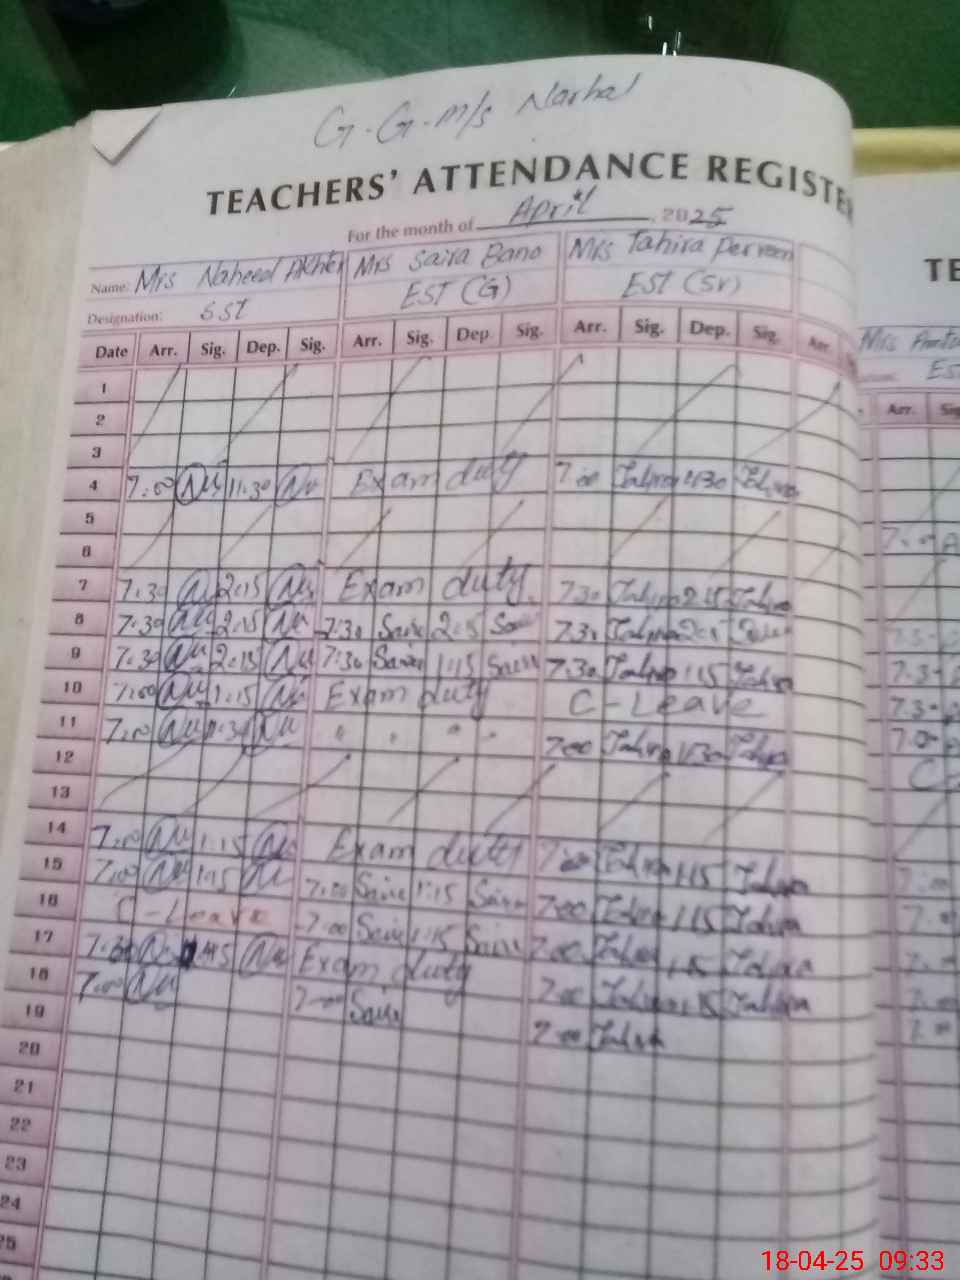 G.G.M/S Narhal
TEACHERS' ATTENDANCE REGISTE
For the month of April, 2025
Name: Mrs Naheed Akhter Mrs Saira Bano Mrs Tahira Perveen
Designation: SST EST (G) EST (SV)
Date Arr. Sig. Dep. Sig. Arr. Sig. Dep. Sig. Arr. Sig. Dep. Sig. Arr.
TE
Mrs
ES
Arr. Sig
1
2
3
4 7:00 11:30 Exam duty 7:00 Tahira 11:30 Tahira
5
6
7 7:30 2:15 Exam duty 7:30 Tahira 2:15 Tahira
8 7:30 2:15 7:30 Saira 2:15 Saira 7:30 Tahira
9 7:30 2:15 7:30 Saira 1:15 Saira 7:30 Tahira 1:15 Tahira
10 7:00 1:15 Exam duty C-Leave
11 7:00 7:00 Tahira Tahira
12
13
14 7:00 1:15 Exam duty 7:00 Tahira 1:15 Tahira
15 7:00 1:15 7:00 Saira 1:15 Saira 7:00 Tahira 1:15 Tahira
16 C-Leave 7:00 Saira 1:15 Saira 7:00 Tahira 1:15 Tahira
17 7:30 Exam duty 7:00 Tahira 1:15 Tahira
18 7:00 7:00 Saira 7:00 Tahira
19
20
21
22
23
24
25
18-04-25 09:33